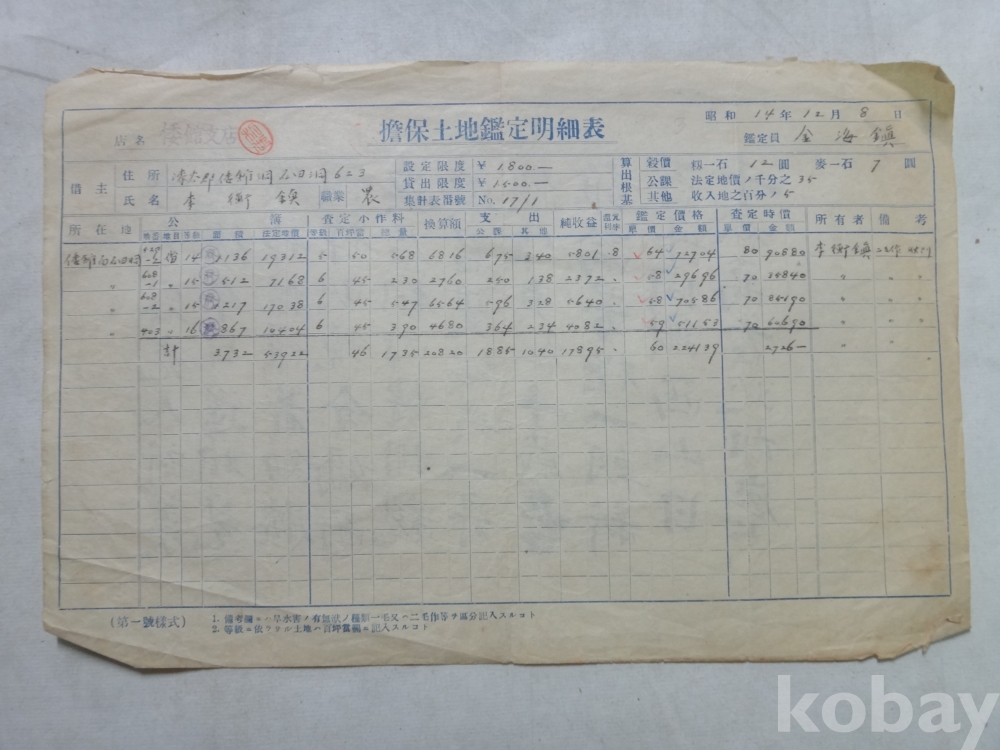 昭和 14年 12月 8日
店名 倭館支店
擔保土地鑑定明細表
鑑定員 金海鎭
借主 住所 漆谷郡倭館洞 623
氏名 李 鎭 職業 農
設定限度 ¥1800—
貸出限度 ¥1500—
集計表番號 No. 17/1
算出根基 穀價 籾一石 12圓 麥一石 7圓
公課 法定地價ノ千分之 35
其他 收入地之百分ノ5
所在地 公簿 査定小作料 換算額 支出 純收益 鑑定價格 査定時價 所有者 備考
地番 地目 等級 面積 法定地價 等級 百坪當 總量 公課 其他 還元利率 單價 金額 單價 金額
-3 畓 14 1136 19312 5 50 568 6816 675 340 5801 .8 64 72704 80 90880
〃 608-1 〃 15 512 2760 6 45 230 2760 250 138 2372 58 29696 70 35840 〃 〃
〃 608-2 〃 15 1217 17038 6 45 547 6564 596 328 5640 58 70586 70 85190 〃 〃
〃 403 〃 16 867 10404 6 45 390 4680 364 234 4082 59 51153 70 60690 〃 〃
計 3732 53922 46 1735 20820 1885 1040 17895 60 224139 2726—
(第一號樣式)
1. 備考欄ニハ旱水害ノ有無獻ノ種類一毛又ハ二毛作等ヲ區分記入スルコト
2. 等級ニ依ラザル土地ハ百坪當欄ニ記入スルコト
kobay